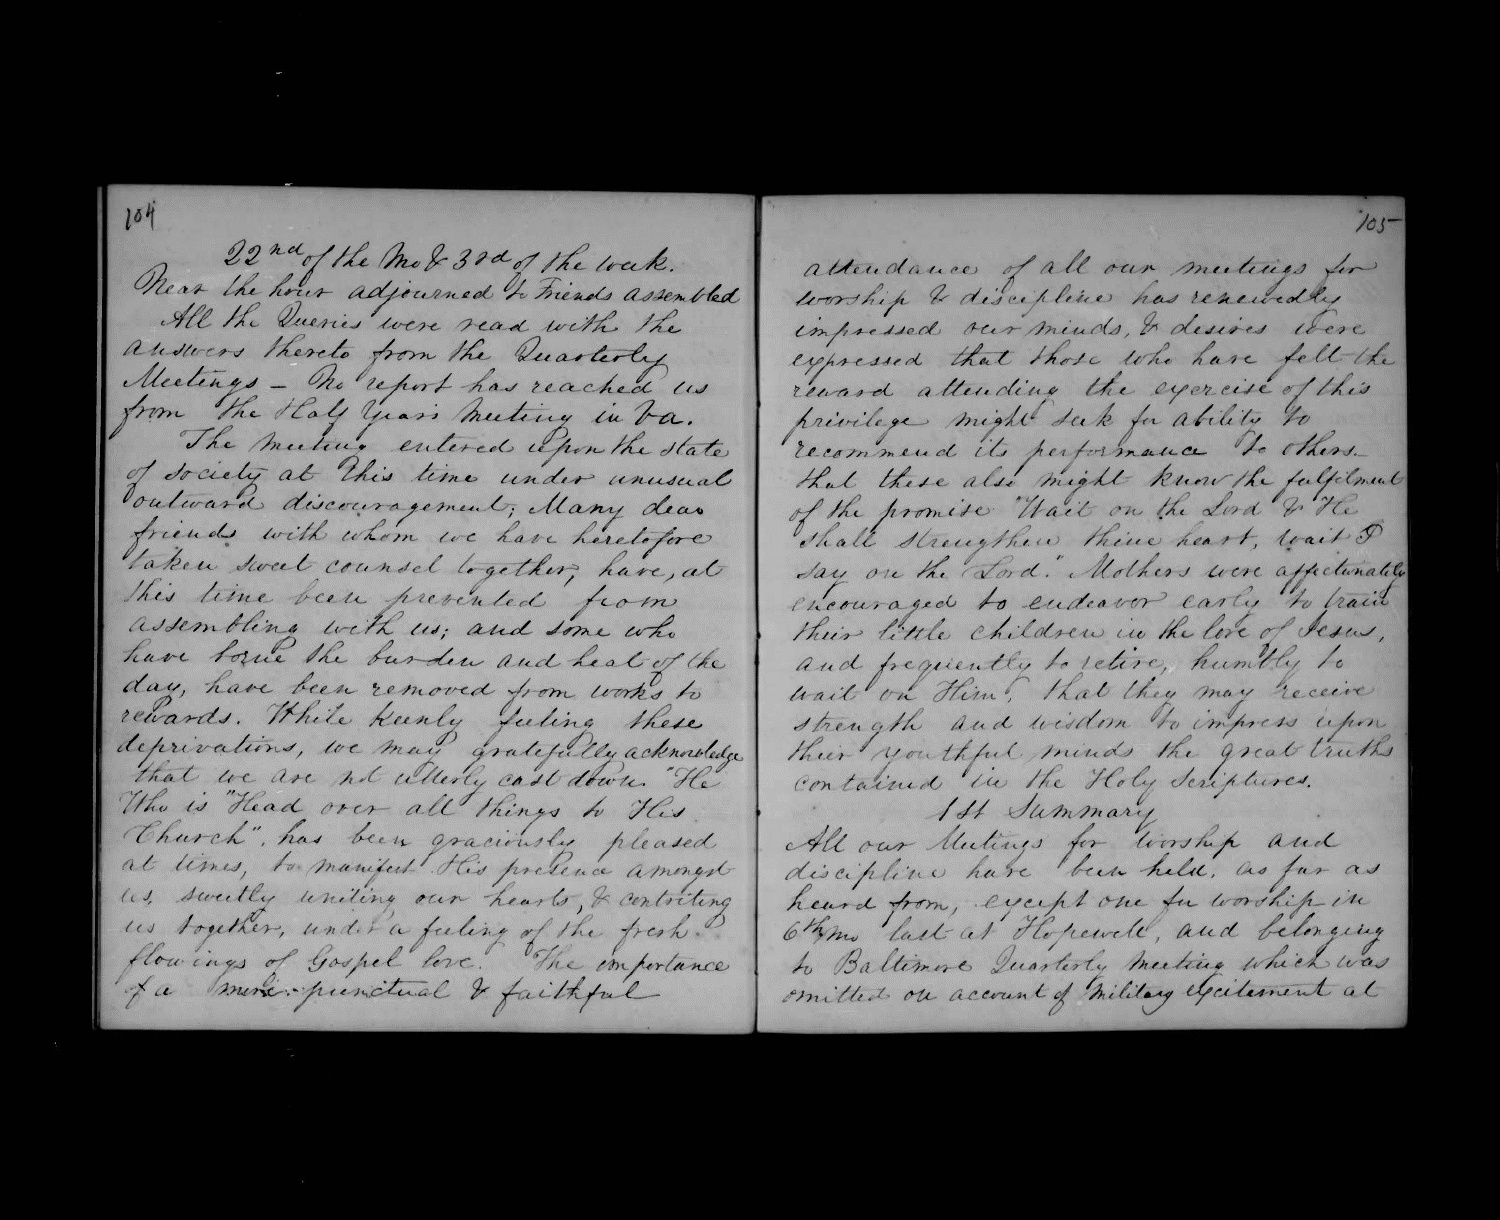 104
22nd of the Mo & 3rd of the week.
Near the hour adjourned to Friends assembled
All the Queries were read with the
answers thereto from the Quarterly
Meetings – No report has reached us
from the Half Years Meeting in Va.
The Meeting entered upon the state
of society at this time under unusual
outward discouragement; Many dear
friends with whom we have heretofore
taken sweet counsel together, have, at
this time been prevented from
assembling with us; and some who
have borne the burden and heat of the
day, have been removed from works to
rewards. While keenly feeling these
deprivations, we may gratefully acknowledge
that we are not utterly cast down. "He
Who is "Head over all things to His
Church", has been graciously pleased
at times, to manifest His presence amongst
us, sweetly uniting our hearts, & contriting
us together, under a feeling of the fresh
flowings of Gospel love. The importance
of a more punctual & faithful
105
attendance of all our meetings for
worship & discipline has renewedly
impressed our minds, & desires were
expressed that those who have felt the
reward attending the exercise of this
privilege might seek for ability to
recommend its performance to others–
that these also might know the fulfilment
of the promise "Wait on the Lord & He
shall strengthen thine heart, wait I
say on the Lord." Mothers were affectunately
encouraged to endeavor early to train
their little children in the love of Jesus,
and frequently to retire, humbly to
wait on Him, that they may receive
strength and wisdom to impress upon
their youthful minds the great truths
contained in the Holy Scriptures.
1st Summary
All our Meetings for worship and
discipline have been held, as far as
heard from, except one for worship in
6th mo last at Hopewell, and belonging
to Baltimore Quarterly Meeting which was
omitted on account of Military excitement at